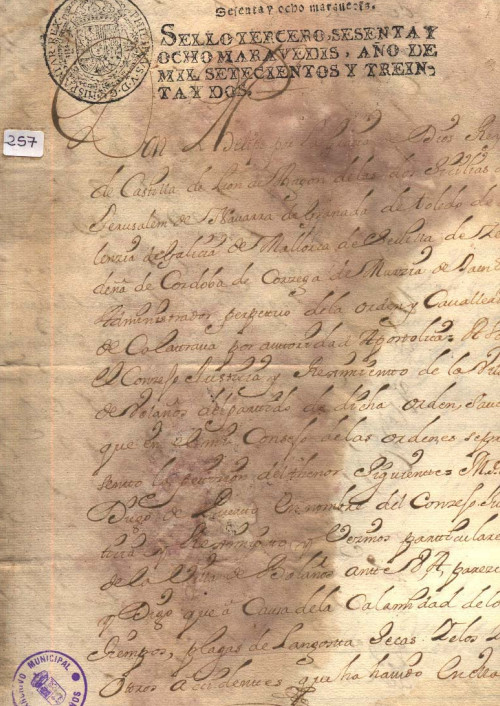 Sesenta y ocho maravedis.
SELLO TERCERO, SESENTA Y
OCHO MARAVEDIS, AÑO DE
MIL SETECIENTOS Y TREIN-
TA Y DOS.
257
Don Phelipe por la Dios
de Castilla de Leon de Aragon de las dos Sicilias
Jerusalem de Navarra de Granada de Toledo de
lenzia de Galicia de Mallorca de Sevilla de
deña de Cordoba de Corzega de Murzia de Jaen
Administrador perpetuo de la orden y Cavalle
de Calatrava por autoridad Apostolica
el Conzejo Justicia y Reximiento de la Vi
de Volaños de dicha Orden,
que en el nuestro Consejo de las ordenes se
sento la petizion del thenor siguiente
Diego de en nombre del Conzejo
y Reximiento, y Vezinos particulare
de la Villa de Bolaños ante V.A. parezco
y Digo que a Causa de la Calamidad de lo
tiempos, plagas de Langosta secas Yelos
Otros accidentes que ha havido en ella
ARCHIVO MUNICIPAL